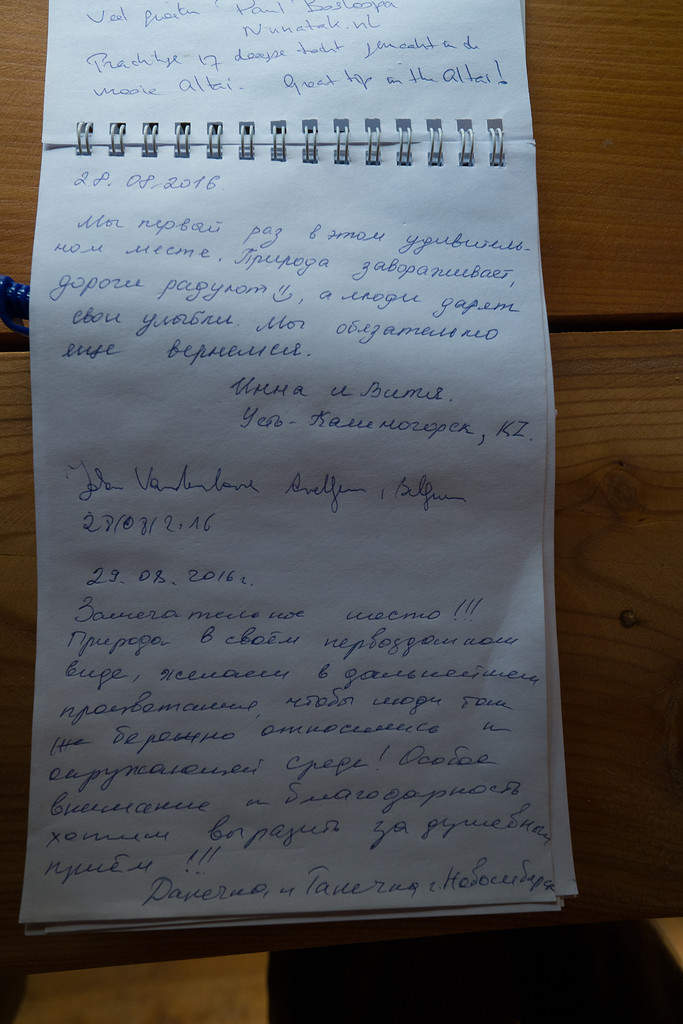 Veel groeten Paul
Nunatak.nl
Prachtige 17 daagse tocht gemaakt in de
mooie Altai. Great trip in the Altai!
28.08.2016
Мы первый раз в этом удивитель-
ном месте. Природа завораживает,
дороги радуют☺, а люди дарят
свои улыбки. Мы обязательно
еще вернемся.
Инна и Витя.
Усть-Каменогорск, KZ.
Belgium
29.08.2016г.
Замечательное место!!!
Природа в своём первозданном
виде, желаем в дальнейшем
процветания, чтобы люди так
же бережно относились к
окружающей среде! Особое
внимание и благодарность
хотим выразить за душевный
приём!!!
Данечка и Танечка г. Новосибирск